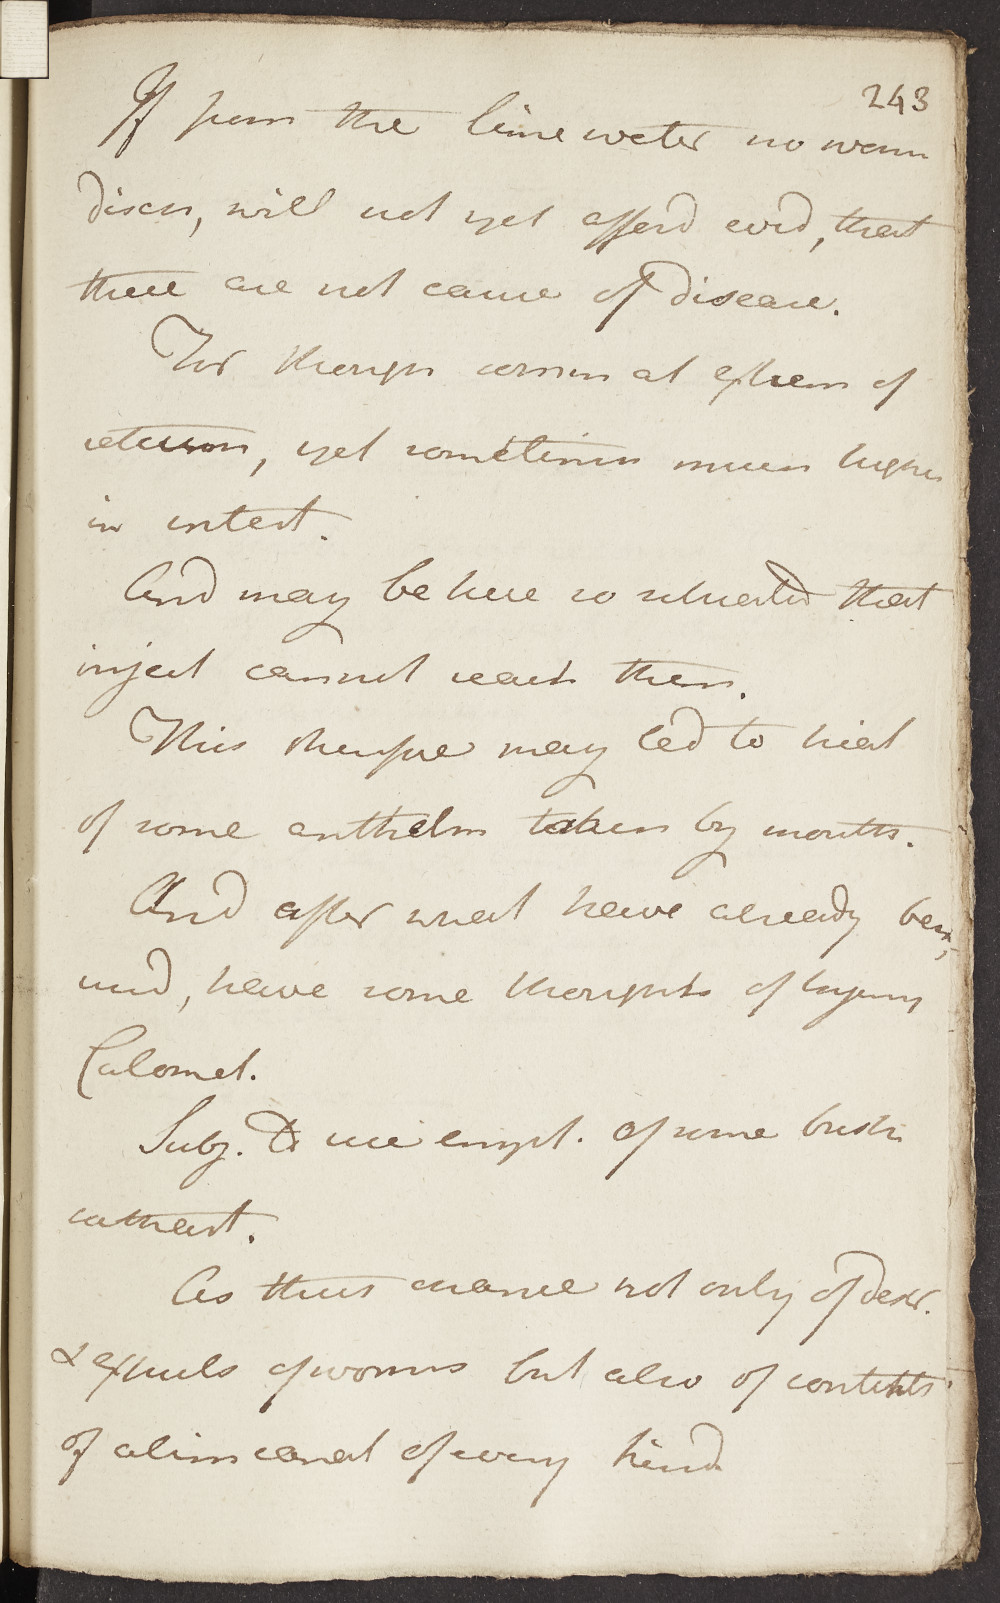 243
If from the lime water no worm
discn, will not yet afford evid, that
there are not cause of disease.
For though comm at extrem of
rectum, yet sometimes much higher
in intest.
And may be here so situated that
inject cannot reach them.
This therefore may led to trial
of some anthelm taken by mouth.
And after what have already been
used, have some thoughts of trying
Calomel.
Subj. to use empl. of some brisk
cathart.
As thus chance not only of destr.
& expuls of worms but also of contents
of alim canal of every kind